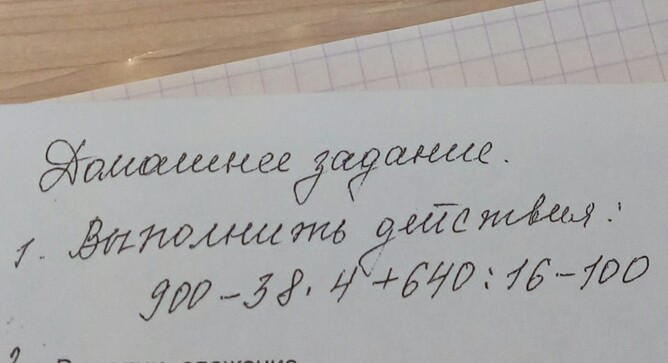 Домашнее задание.
1. Выполнить действия:
900-38·4+640:16-100
2.